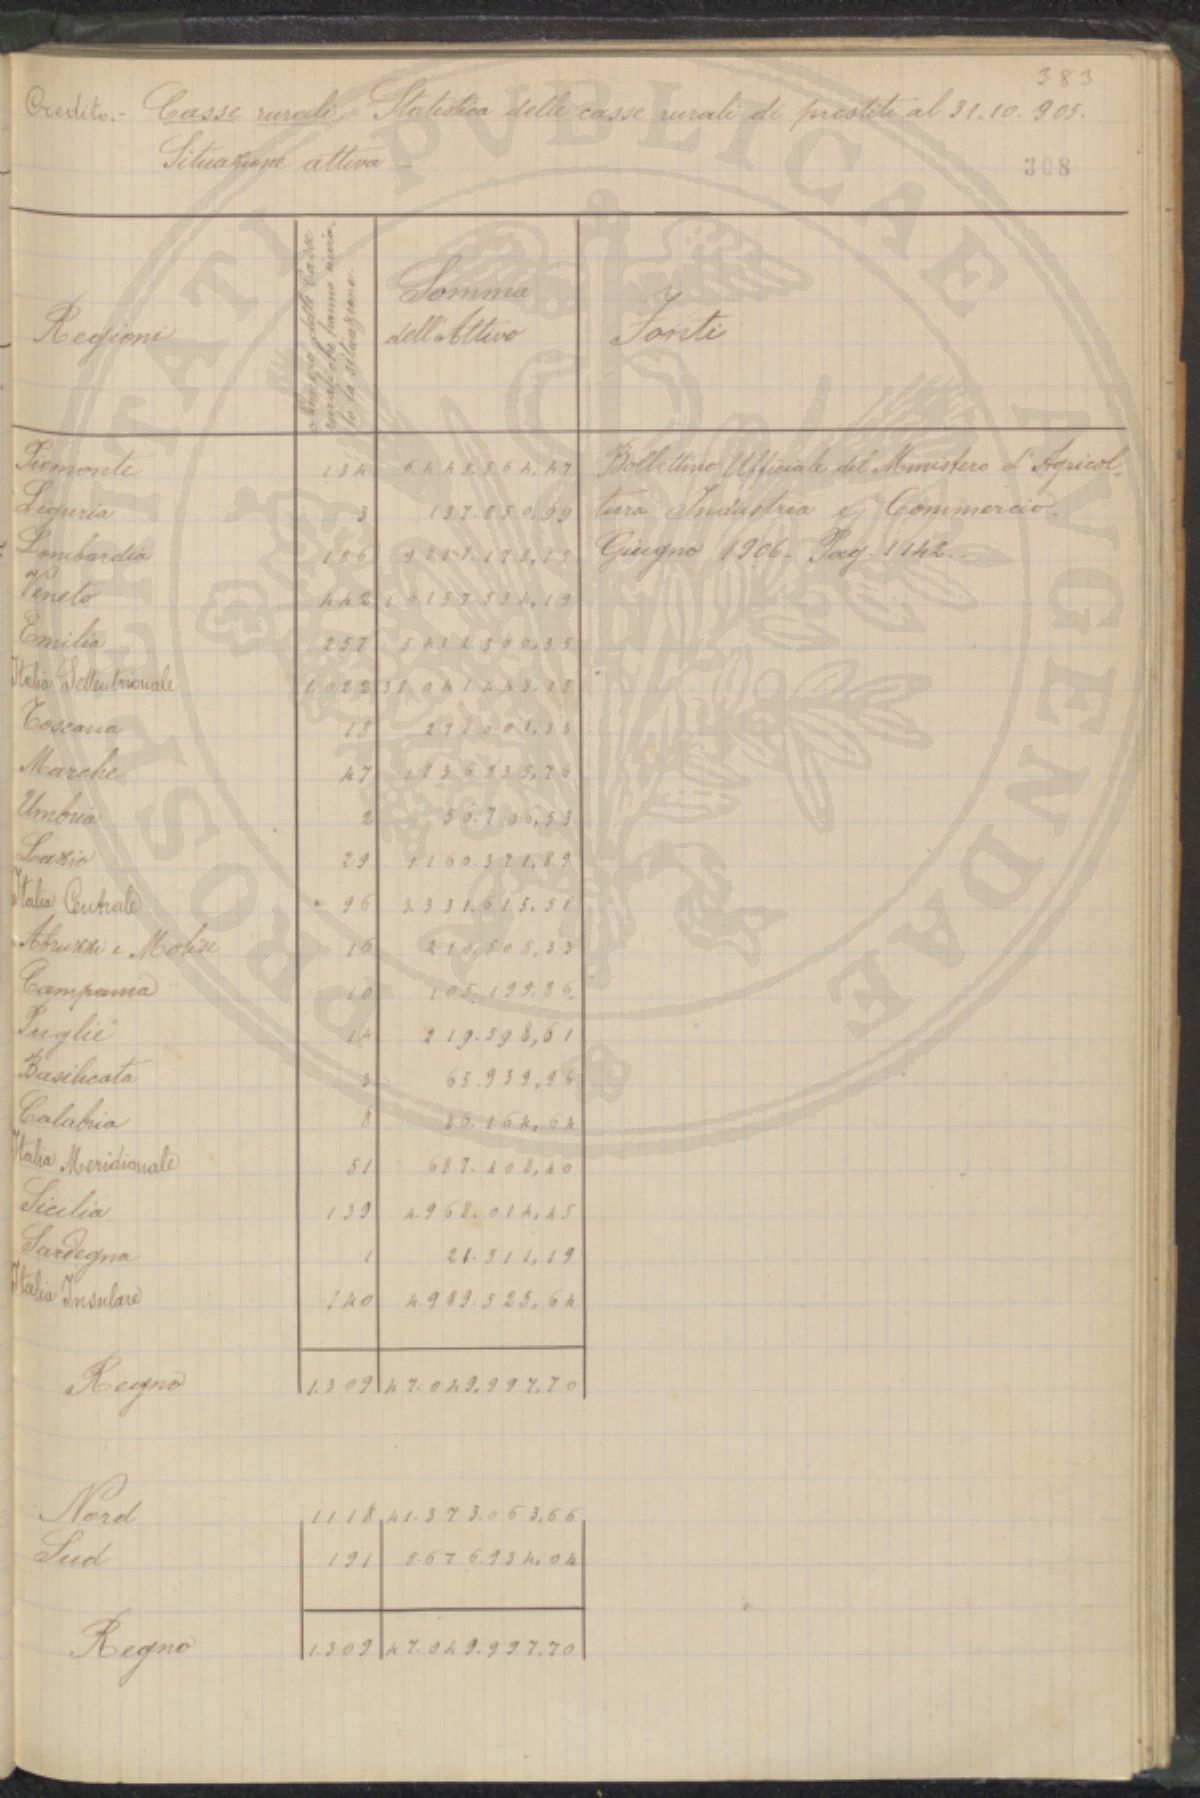 383
Credito.- Casse rurali Statistica delle casse rurali di prestiti al 31.10.905.
Situazione attiva -
308
Regioni
Numero delle Casse rurali che hanno invia-to la situazione
Somma dell'Attivo
Fonti
Piemonte 134
Bollettino Ufficiale del Ministero d'Agricol-
Liguria 3 137.850,99
tura Industria e Commercio.
Lombardia 186
Giugno 1906. Pag. 1142
Veneto 442 10157534,19
Emilia 257
Italia Settentrionale 1.022
Toscana 18
Marche 47
Umbria 2 56.706,53
Lazio 29 1.160.371,89
Italia Centrale 96
Abruzzi e Molise 16 210.505,33
Campania 10 105.199.86
Puglie 14 219.598,61
Basilicata 3 65.939,96
Calabria 8 86.164,64
Italia Meridionale 51 687.408,40
Sicilia 139 4.968.014,45
Sardegna 1 21.511,19
Italia Insulare 140 4.989.525,64
Regno 1.309 47.049.997,70
Nord 1118 41.373.063,66
Sud 191 5.676.934,04
Regno 1.309 47.049.997,70
PROSPERITATI PVBLICAE AVGENDAE